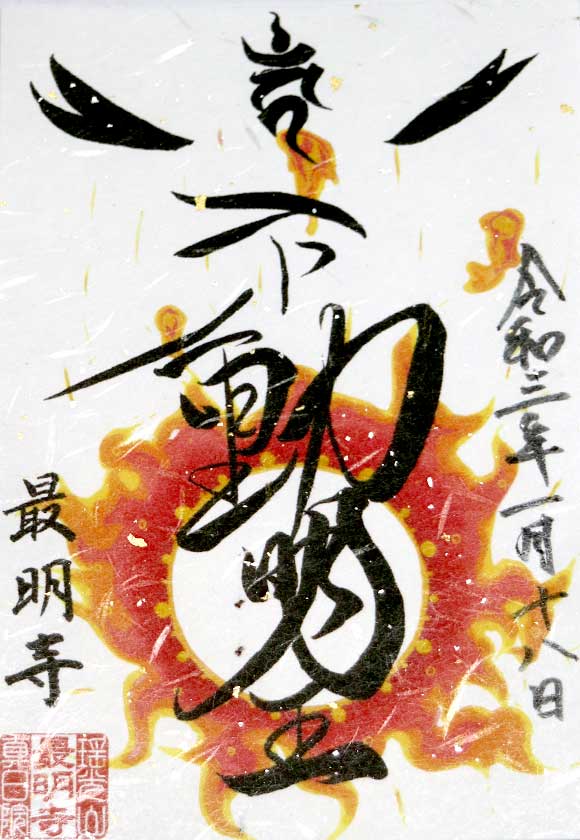 令和三年一月十八日
不動明王
最明寺
最明寺